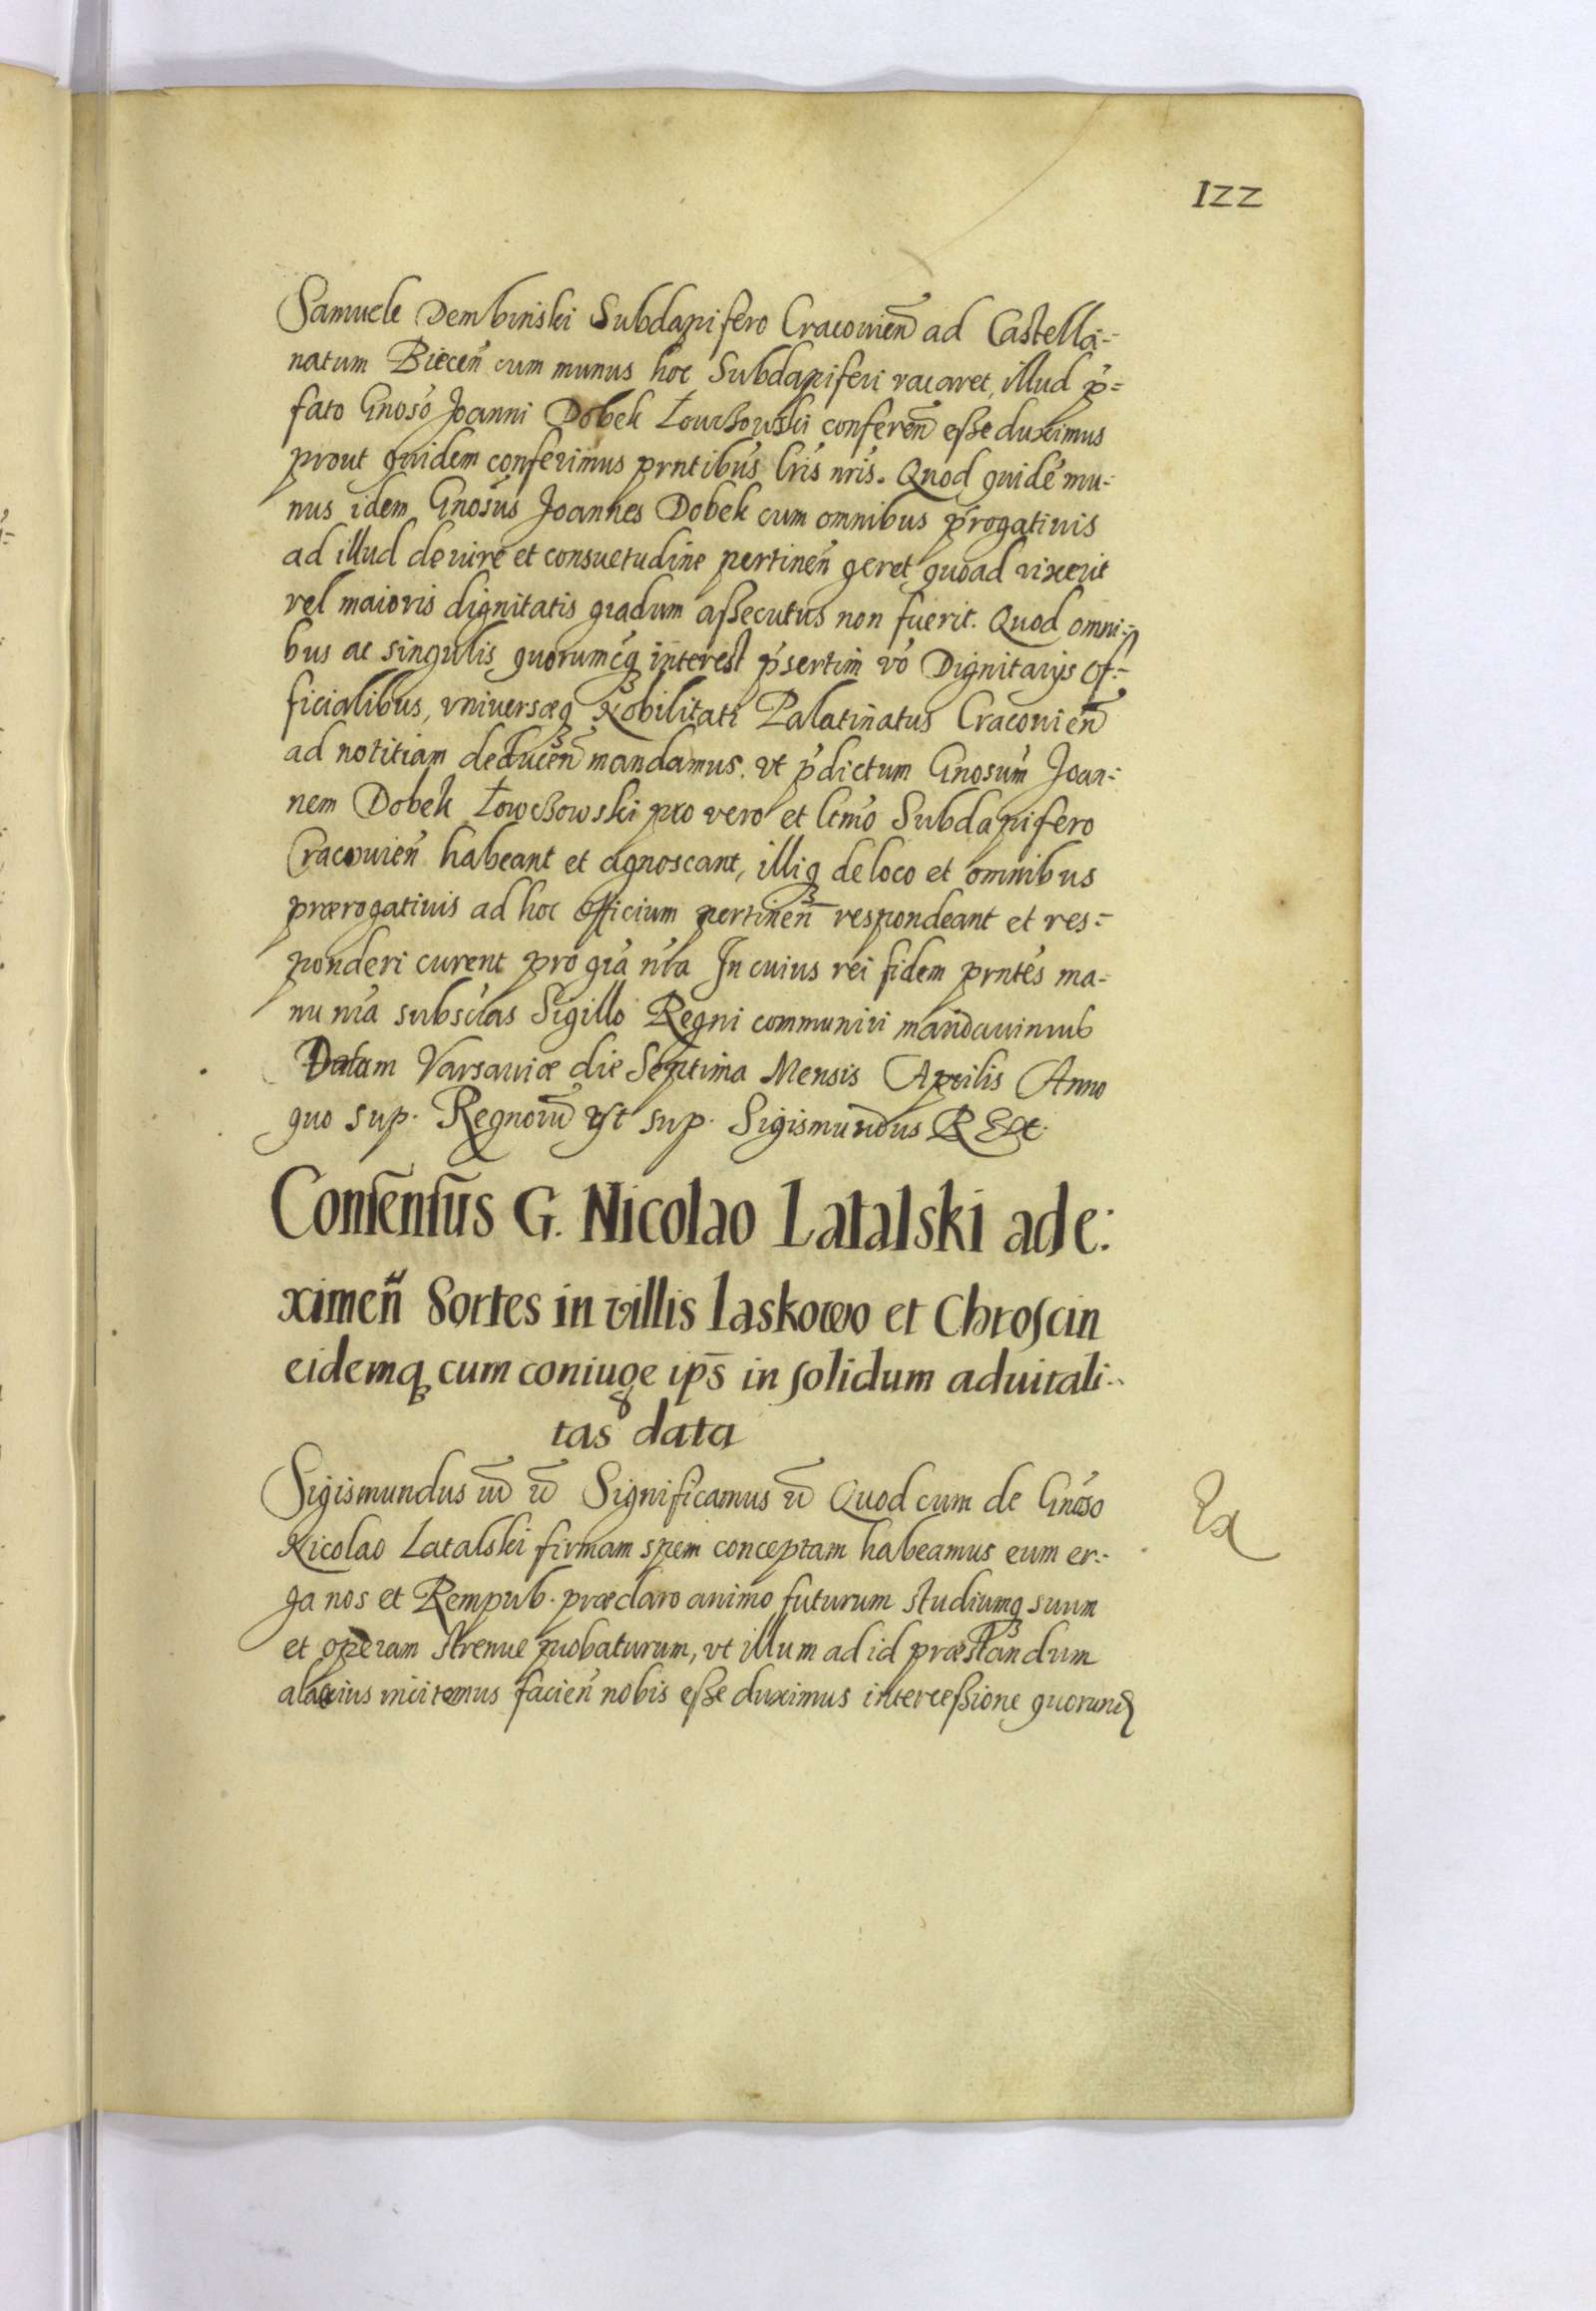 122
Samuele Dembinski Subdapifero Cracovień ad Castella-
natum Bieceń cum munus hoc Subdapiferi vacaret, illud p̃-
fato Gnoso Joanni Dobek Łowczowski confereń eße duximus
prout quidem conferimus prntibus lris nris. Quod quidé mu-
nus idem Gnosus Joannes Dobek cum omnibus prrogativis
ad illud de iure et consuetudine pertineń geret quoad vixerit
vel maioris dignitatis gradum aßecutus non fuerit. Quod omni-
bus ac singulis quorumcq interest pr̃sertim vo Dignitarijs Of-
ficialibus, vniversæq Nobilitati Palatinatus Cracovień
ad notitiam deduceń mandamus. vt pdictum Gnosum Joan-
nem Dobek Łowczowski pro vero et ltmo Subdapifero
Cracovień habeant et agnoscant, illiq de loco et omnibus
prærogativis ad hoc officium pertineń respondeant et res-
ponderi curent pro gra nra In cuius rei fidem prntes ma-
nu nra subscras Sigillo Regni communiri mandavimus
Datum Varsaviæ die Septima Mensis Aprilis Anno
quo sup. Regnorū vt sup. Sigismundus REx.
Consensus G. Nicolao Latalski ad e:
ximeń Sortes in villis Laskowo et Chroscin
eidemq cum coniuge ips̄ in solidum aduitali-
tas data
Sigismundus Significamus Quod cum de Gnoso
Nicolao Latalski firmam spem conceptam habeamus eum er-
ga nos et Rempub. præclaro animo futurum studiumq suum
et operam strenue probaturum, vt illum ad id præstandum
alacrius incitemus facień nobis eße duximus interceßione quorund